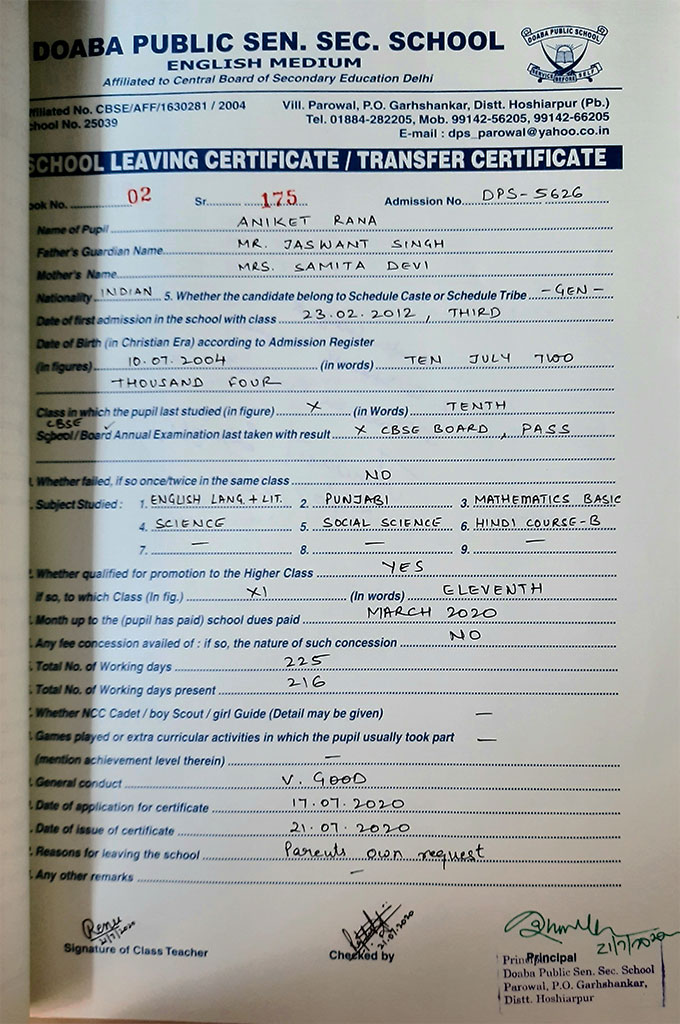 DOABA PUBLIC SEN. SEC. SCHOOL
ENGLISH MEDIUM
Affiliated to Central Board of Secondary Education Delhi
DOABA PUBLIC SCHOOL
SERVICE BEFORE SELF
ffiliated No. CBSE/AFF/1630281 / 2004
hool No. 25039
Vill. Parowal, P.O. Garhshankar, Distt. Hoshiarpur (Pb.)
Tel. 01884-282205, Mob. 99142-56205, 99142-66205
E-mail : dps_parowal@yahoo.co.in
SCHOOL LEAVING CERTIFICATE / TRANSFER CERTIFICATE
ook No. 02 Sr. 175 Admission No. DPS-5626
Name of Pupil ANIKET RANA
Father's Guardian Name MR. JASWANT SINGH
Mother's Name MRS. SAMITA DEVI
Nationality INDIAN 5. Whether the candidate belong to Schedule Caste or Schedule Tribe -GEN-
Date of first admission in the school with class 23.02.2012, THIRD
Date of Birth (in Christian Era) according to Admission Register
(in figures) 10.07.2004 (in words) TEN JULY TWO
THOUSAND FOUR
Class in which the pupil last studied (in figure) X (in Words) TENTH
CBSE
School/Board Annual Examination last taken with result X CBSE BOARD, PASS
. Whether failed, if so once/twice in the same class NO
. Subject Studied : 1. ENGLISH LANG.+LIT. 2. PUNJABI 3. MATHEMATICS BASIC
4. SCIENCE 5. SOCIAL SCIENCE 6. HINDI COURSE-B
7. — 8. — 9. —
. Whether qualified for promotion to the Higher Class YES
if so, to which Class (In fig.) XI (In words) ELEVENTH
. Month up to the (pupil has paid) school dues paid MARCH 2020
. Any fee concession availed of : if so, the nature of such concession NO
. Total No. of Working days 225
. Total No. of Working days present 216
. Whether NCC Cadet / boy Scout / girl Guide (Detail may be given) —
. Games played or extra curricular activities in which the pupil usually took part —
(mention achievement level therein) —
. General conduct V. GOOD
. Date of application for certificate 17.07.2020
. Date of issue of certificate 21.07.2020
. Reasons for leaving the school Parents own request
. Any other remarks —
Renu
21/7/2020
21.07.2020
21/7/2020
Signature of Class Teacher
Checked by
Principal
Principal
Doaba Public Sen. Sec. School
Parowal, P.O. Garhshankar,
Distt. Hoshiarpur